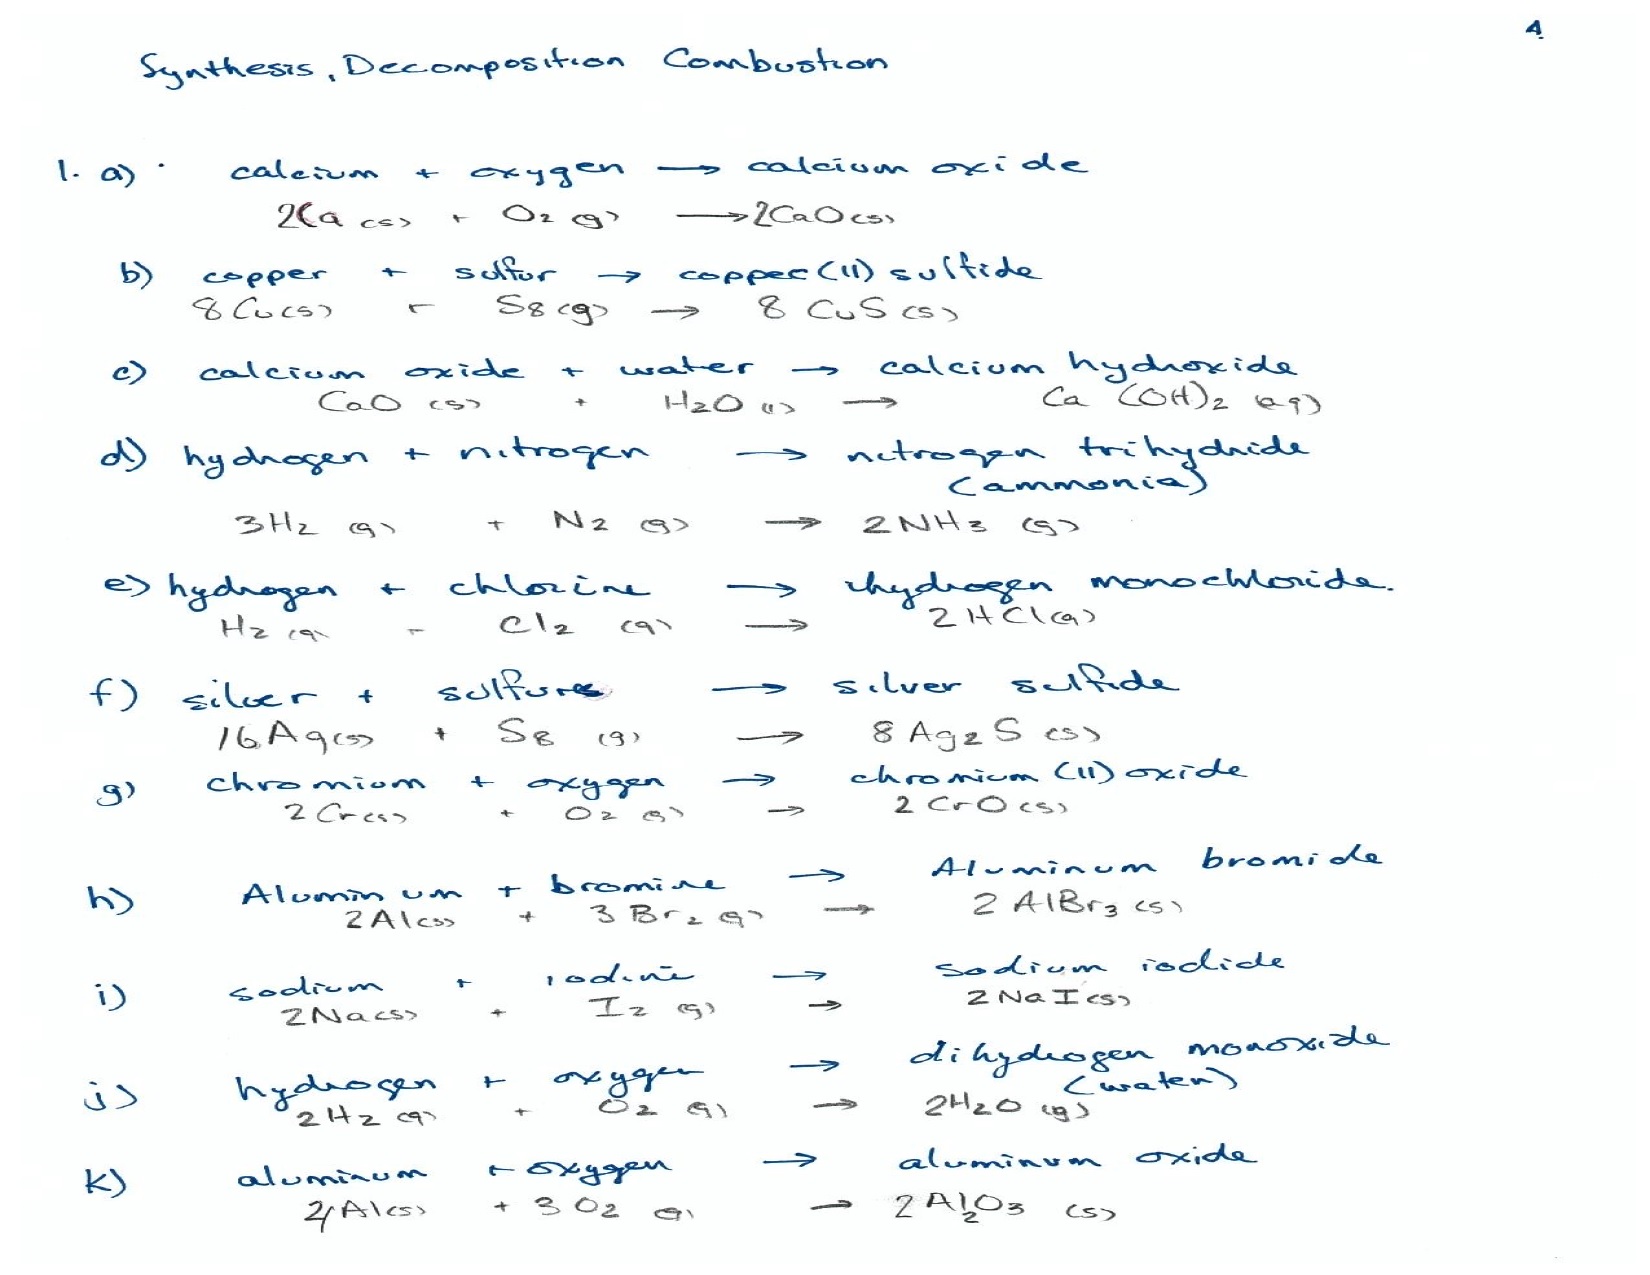 4
Synthesis, Decomposition Combustion
1. a) calcium + oxygen → calcium oxide
2Ca (s) + O2 (g) → 2CaO (s)
b) copper + sulfur → copper (II) sulfide
8 Cu (s) + S8 (g) → 8 CuS (s)
c) calcium oxide + water → calcium hydroxide
CaO (s) + H2O (l) → Ca (OH)2 (aq)
d) hydrogen + nitrogen → nitrogen trihydride
(ammonia)
3H2 (g) + N2 (g) → 2NH3 (g)
e) hydrogen + chlorine → hydrogen monochloride.
H2 (g) + Cl2 (g) → 2 HCl (g)
f) silver + sulfur → silver sulfide
16 Ag (s) + S8 (g) → 8 Ag2S (s)
g) chromium + oxygen → chromium (II) oxide
2 Cr (s) + O2 (g) → 2 CrO (s)
h) Aluminum + bromine → Aluminum bromide
2 Al (s) + 3 Br2 (g) → 2 AlBr3 (s)
i) sodium + iodine → sodium iodide
2 Na (s) + I2 (g) → 2 NaI (s)
j) hydrogen + oxygen → dihydrogen monoxide
(water)
2H2 (g) + O2 (g) → 2H2O (g)
k) aluminum + oxygen → aluminum oxide
4 Al (s) + 3 O2 (g) → 2 Al2O3 (s)